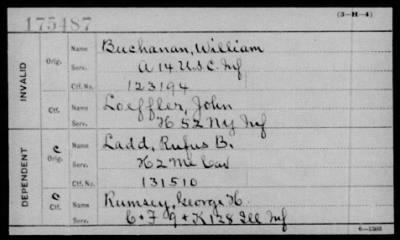 175487
(3-H-4)
INVALID
Orig.
Name Buchanan, William
Serv. A 14 U.S.C. Inf
Ctf. No. 123194
Ctf.
Name Loeffler, John
Serv. H 52 NY Inf
DEPENDENT
C Orig.
Name Ladd, Rufus B.
Serv. H 2 Me Cav
Ctf. No. 131510
C Ctf.
Name Rumsey, George H.
Serv. C + F 9 + K 128 Ill Inf
6-1503